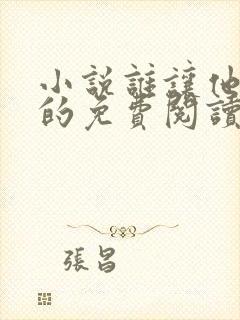 小說誰讓他
的免費閱讀
張昌